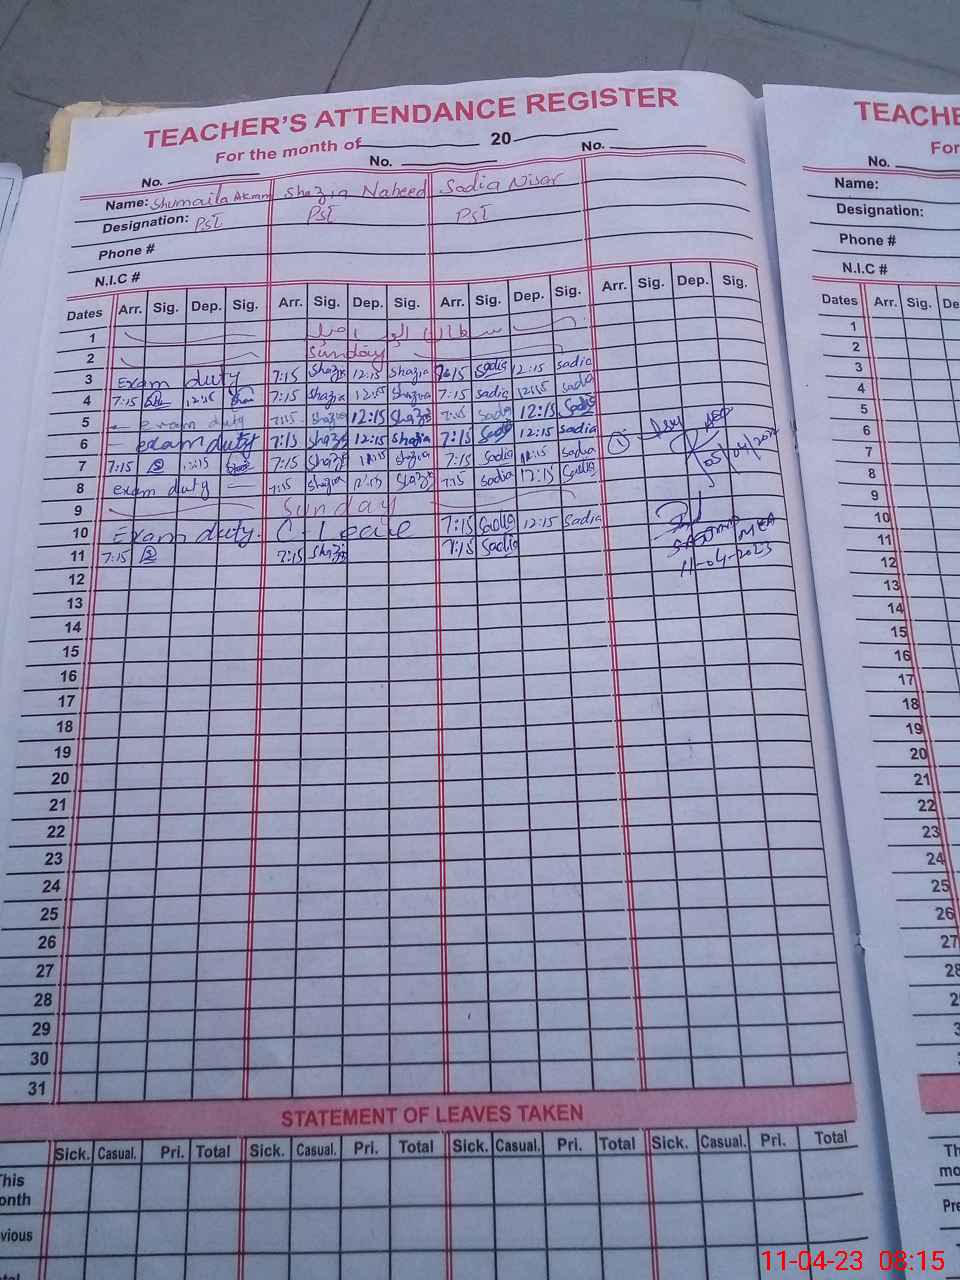 TEACHER'S ATTENDANCE REGISTER
For the month of 20
No. No. No.
Name: Shumaila Shazia Naheed Sadia Nisar
Designation: PST PST PST
Phone #
N.I.C #
Dates Arr. Sig. Dep. Sig. Arr. Sig. Dep. Sig. Arr. Sig. Dep. Sig. Arr. Sig. Dep. Sig.
1
2 Sunday
3 Exam duty 7:15 Shazia 12:15 Shazia 7:15 Sadia 12:15 sadia
4 7:15 12:15 7:15 Shazia 12:15 Shazia 7:15 sadia 12:15 sadia
5 exam duty 7:15 Shazia 12:15 Shazia 7:15 Sadia 12:15 Sadia
6 exam duty 7:15 Shazia 12:15 Shazia 7:15 Sadia 12:15 sadia
7 7:15 12:15 7:15 Shazia 12:15 Shazia 7:15 Sadia 12:15 Sadia
8 exam duty 7:15 Shazia 12:15 Shazia 7:15 Sadia 12:15 Sadia
9 Sunday
10 Exam duty. C-Leave 7:15 Sadia 12:15 Sadia
11 7:15 7:15 Shazia 7:15 Sadia
MEA
11-04-2023
12
13
14
15
16
17
18
19
20
21
22
23
24
25
26
27
28
29
30
31
STATEMENT OF LEAVES TAKEN
Sick. Casual. Pri. Total Sick. Casual. Pri. Total Sick. Casual. Pri. Total Sick. Casual. Pri. Total
This
onth
vious
TEACHE
For
No.
Name:
Designation:
Phone #
N.I.C #
Dates Arr. Sig. De
1
2
3
4
5
6
7
8
9
10
11
12
13
14
15
16
17
18
19
20
21
22
23
24
25
26
27
28
2
3
3
Th
mo
Pre
11-04-23 08:15